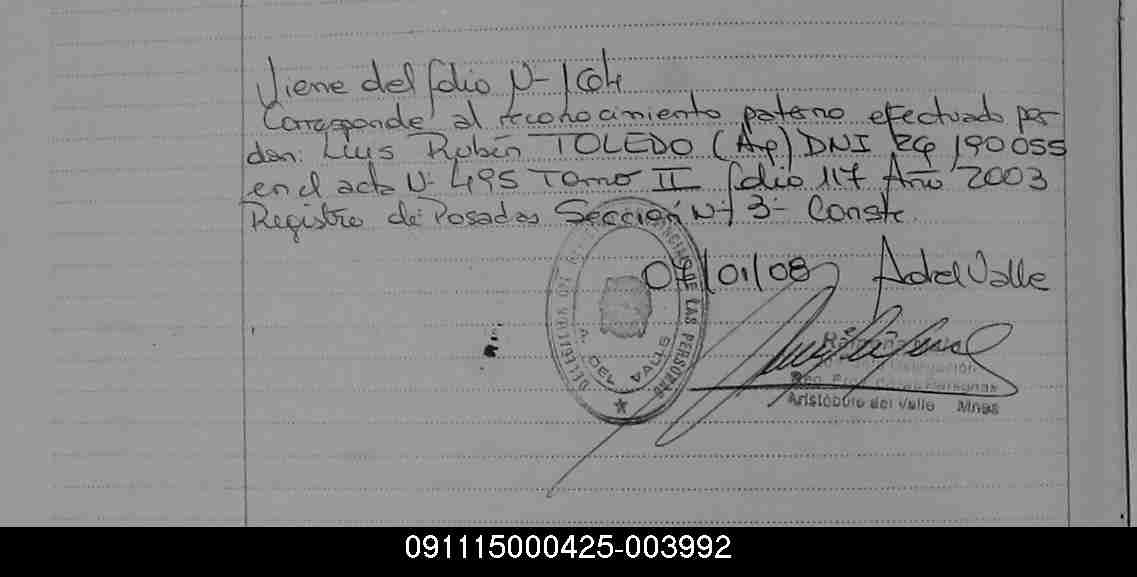 Viene del folio Nº 164
Corresponde al reconocimiento paterno efectuado por
don: Luis Rubén TOLEDO (Ap) DNI 29 190055
en el acta Nº 495 Tomo II folio 117 Año 2003
Registro de Posadas Sección Nº 3- Conste.
07/01/08 A del Valle
DE LAS PERSONAS
A. DEL VALLE
Delegación
Aristóbulo del Valle Mnes
091115000425-003992